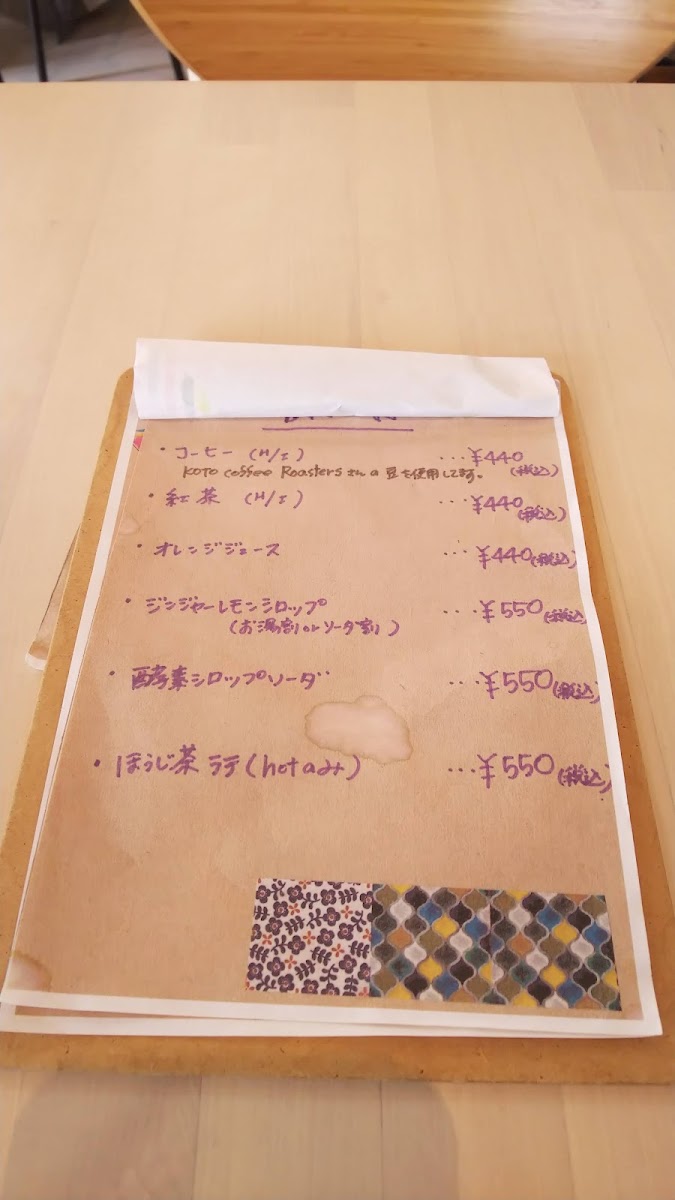 ・コーヒー (H/I) ...¥440(税込)
KOTO coffee Roastersさんの豆を使用してます。
・紅茶 (H/I) ...¥440(税込)
・オレンジジュース ...¥440(税込)
・ジンジャーレモンシロップ ...¥550(税込)
(お湯割orソーダ割)
・酵素シロップソーダ ...¥550(税込)
・ほうじ茶ラテ(hotのみ) ...¥550(税込)